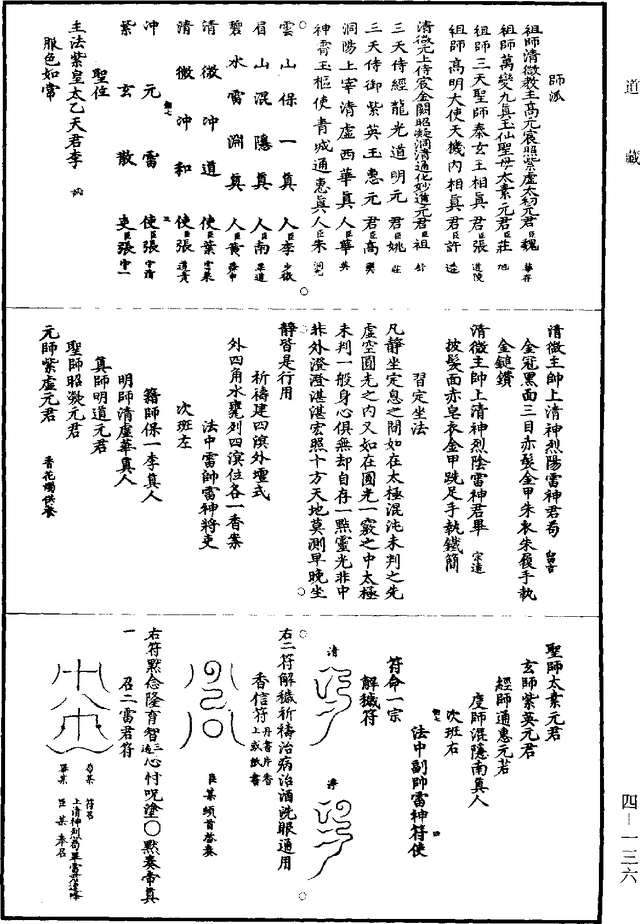 道藏
師派
祖師清微教主高元宸照紫虛太初元君臣魏華存
祖師萬變九真玉仙聖母太素元君臣莊旭
祖師三天聖師泰玄上相真君臣張道陵
祖師高明大使天機內相真君臣許遜
清微元上侍宸金闕昭凝洞清通化妙道元君臣祖舒
三天侍經龍光道明元君臣姚莊
三天侍御紫英玉惠元君臣高奭
洞陽上宰清虛西華真人臣華英
神霄玉樞使青城通惠真人臣朱洞元
雲山保一真人臣李少微
眉山混隱真人臣南畢道
碧水雷淵真人臣黃舜申
清微沖道使臣葉雲萊
清微沖和使臣張道貴
沖元雷使臣張守清
紫玄散吏臣張守一
聖位
主法紫皇太乙天君李
服色如常
清微主帥上清神烈陽雷神君苟留吉
金冠黑面三目赤髮金甲朱衣朱履手執
金鎚鑽
清微主帥上清神烈陰雷神君畢宗遠
披髮面赤皂衣金甲跣足手執鐵簡
習定坐法
凡靜坐定息之間如在太極混沌未判之先
虛空圓光之內又如在圓光一竅之中太極
未判一般身心俱無却自存一點靈光非中
非外澄澄湛湛宏照十方天地莫測早晚坐
靜皆是行用
祈禱建四溟外壇式
外四角水甕列四溟位各一香案
法中雷帥雷神將吏
次班左
籍師保一李真人
明師清虛華真人
真師明道元君
聖師昭凝元君
元師紫虛元君
香花燭供養
聖師太素元君
玄師紫英元君
經師通惠元君
度師混隱南真人
次班右
法中副帥雷神符使
符命一宗
解穢符
清
淨
右二符解穢祈禱治病治酒洗眼通用
香信符丹書片香上或紙書
臣某頓首啟奏
右符默念隆育智三遍心忖呪塗〇默奏帝真
一召二雷君符
苟某
畢某
符召
上清神烈苟畢雷君速降
臣某奉召
四—一三六